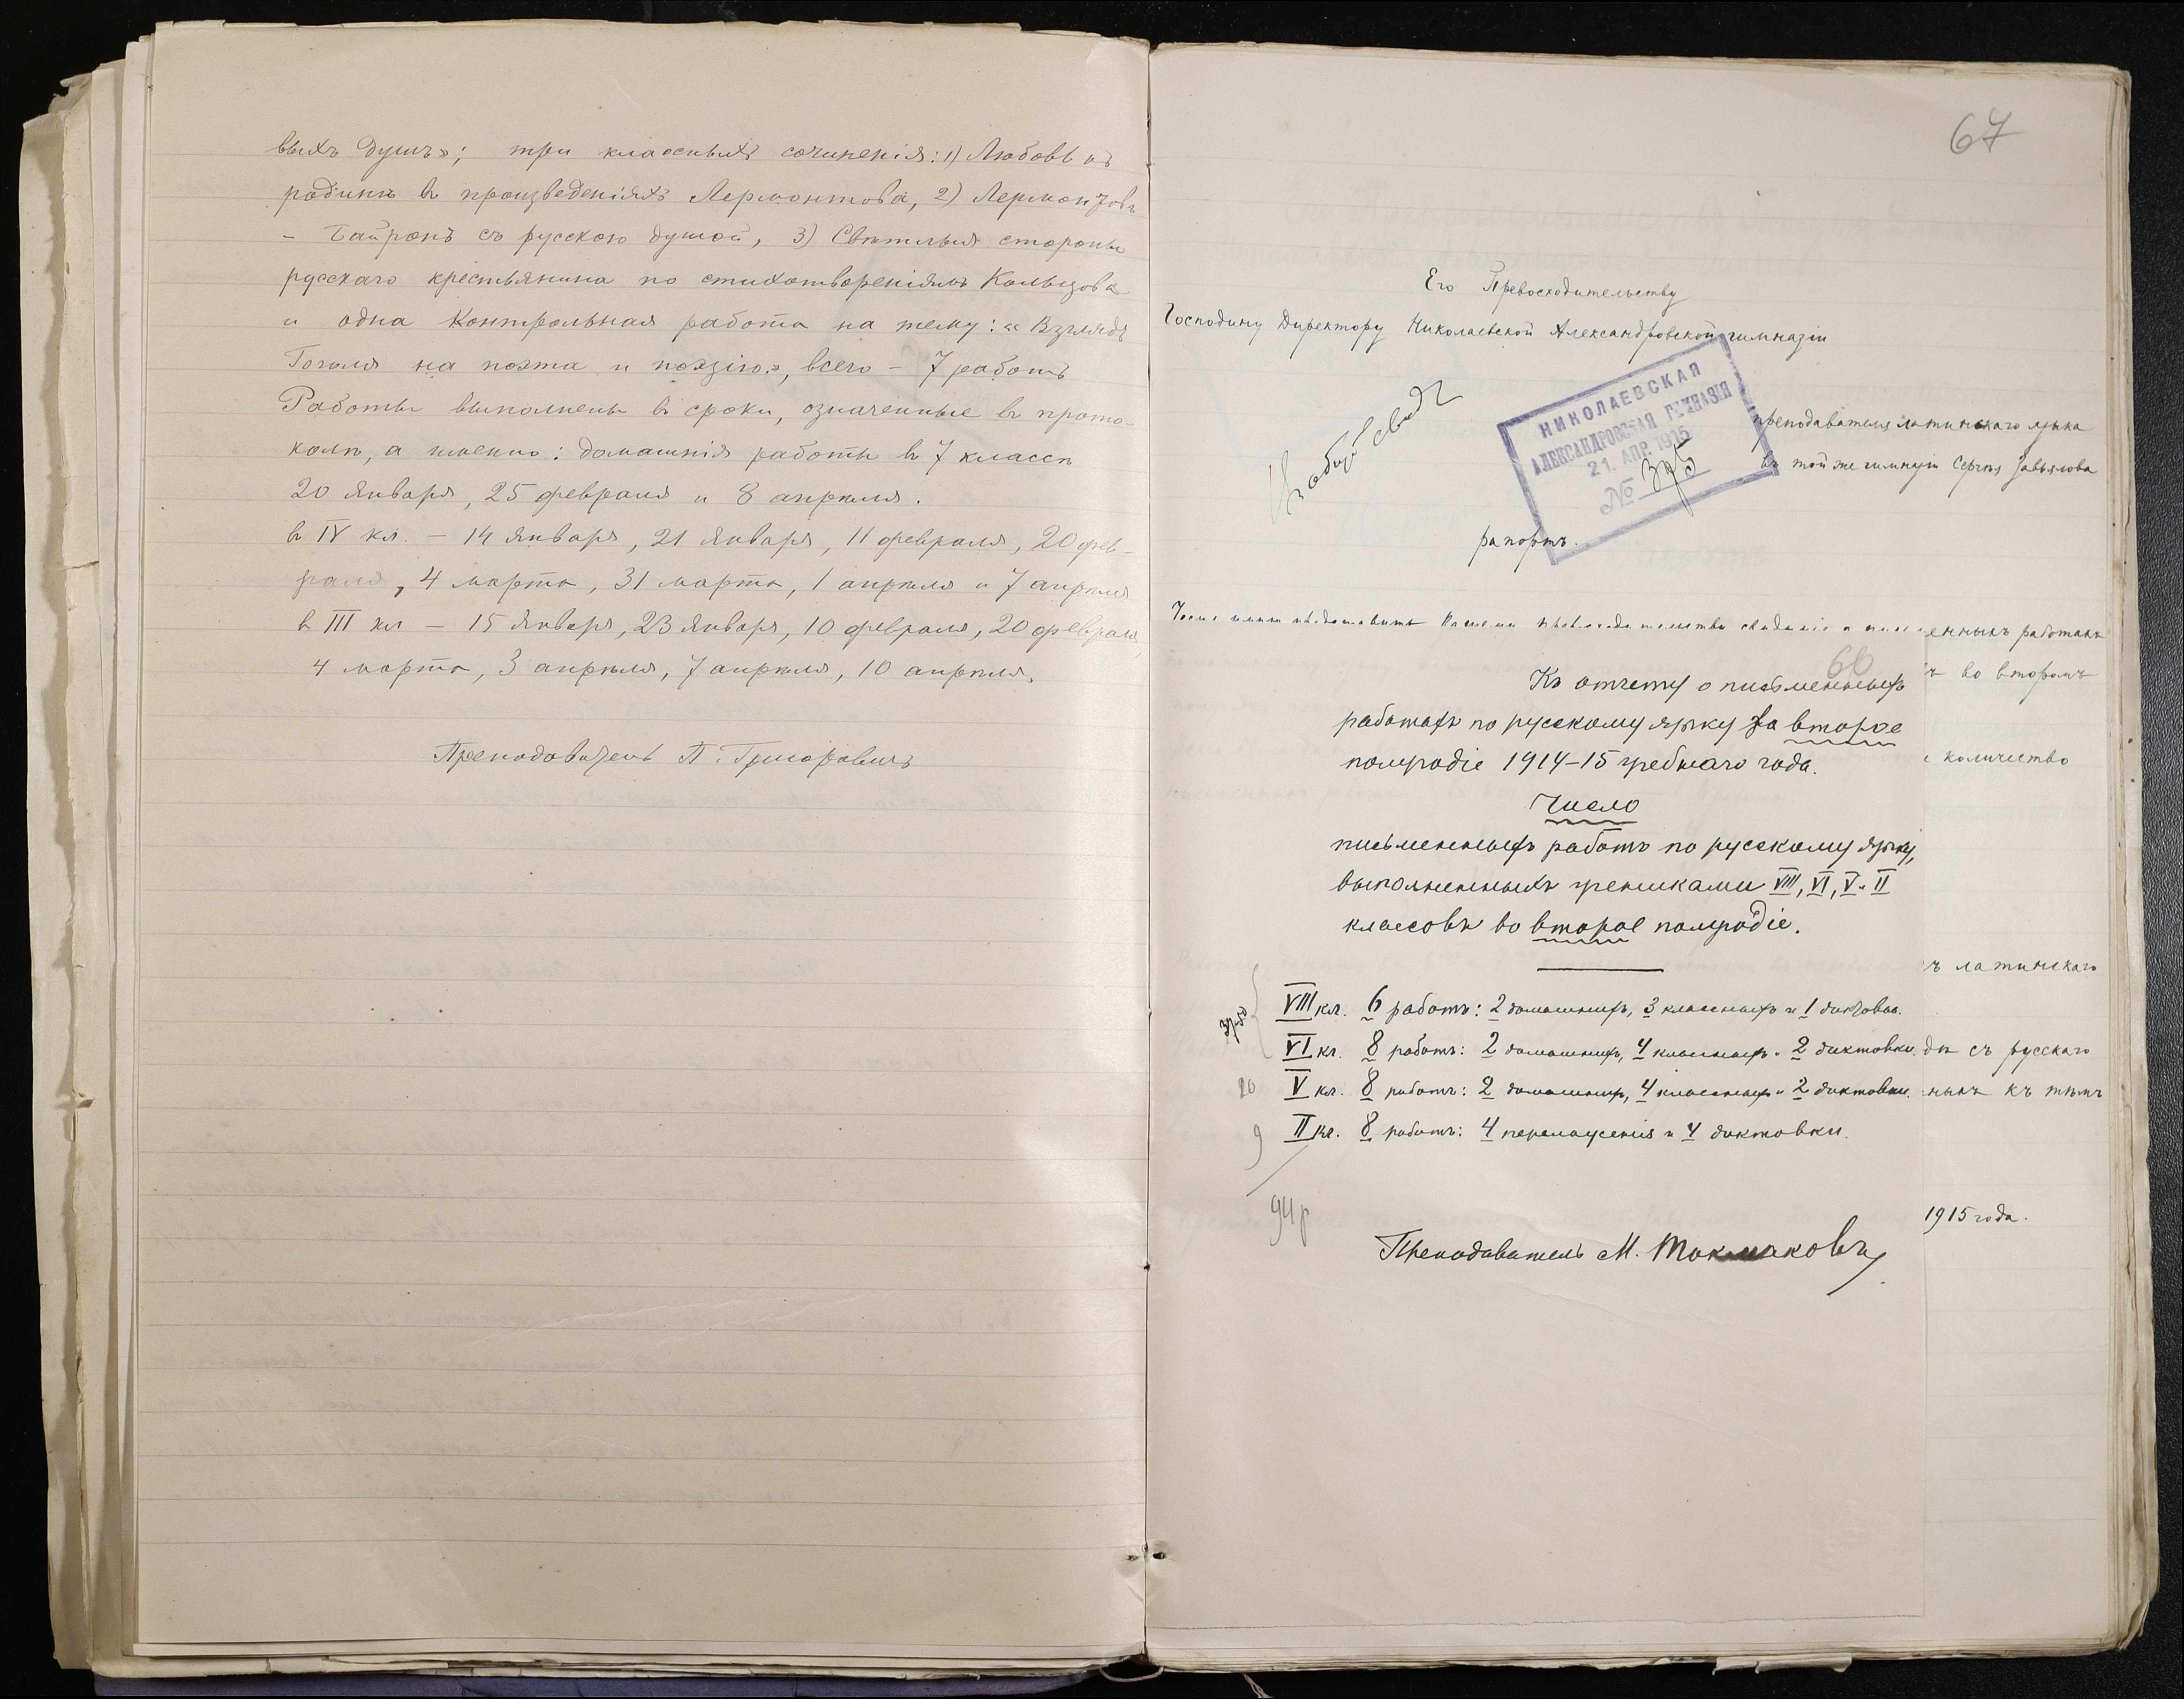 выхъ душъ»; три классныхъ сочиненія: 1) Любовь къ
родинѣ въ произведеніяхъ Лермонтова, 2) Лермонтовъ
– Байронъ съ русскою душой, 3) Свѣтлыя стороны
русскаго крестьянина по стихотвореніямъ Кольцова
и одна контрольная работа на тему: «Взглядъ
Гоголя на поэта и поэзію», всего – 7 работъ
Работы выполнены въ сроки, означенные въ прото-
колѣ, а именно: домашнія работы въ 7 классѣ
20 января, 25 февраля и 8 апрѣля.
въ IV кл. – 14 января, 21 января, 11 февраля, 20 фев-
раля, 4 марта, 31 марта, 1 апрѣля и 7 апрѣля
в III кл – 15 января, 23 января, 10 февраля, 20 февраля,
4 марта, 3 апрѣля, 7 апрѣля, 10 апрѣля.
Преподаватель П. Григоровичъ
67
Его Превосходительству
Господину Директору Николаевской Александровской гимназіи
НИКОЛАЕВСКАЯ
АЛЕКСАНДРОВСКАЯ ГИМНАЗІЯ
21. АПР. 1915
№
преподавателя латинскаго языка
въ той же гимназіи Сергѣя Завьялова
рапортъ.
Честь имѣю представить Вашему Превосходительству
енныхъ работахъ
66
Къ отчету о письменныхъ
ъ во второмъ
работахъ по русскому языку за второе
полугодіе 1914–15 учебнаго года.
количество
Число
письменныхъ работъ по русскому языку,
выполненныхъ учениками VIII, VI, V и II
классовъ во второе полугодіе.
ъ латинскаго
VIII кл. 6 работъ: 2 домашнихъ, 3 классныхъ и 1 диктовка.
VI кл. 8 работъ: 2 домашнихъ, 4 классныхъ и 2 диктовки.
ды съ русскаго
V кл. 8 работъ: 2 домашнихъ, 4 классныхъ и 2 диктовки.
ныхъ къ тѣмъ
9 II кл. 8 работъ: 4 переложенія и 4 диктовки.
94 р
1915 года.
Преподаватель М. Токмаковъ